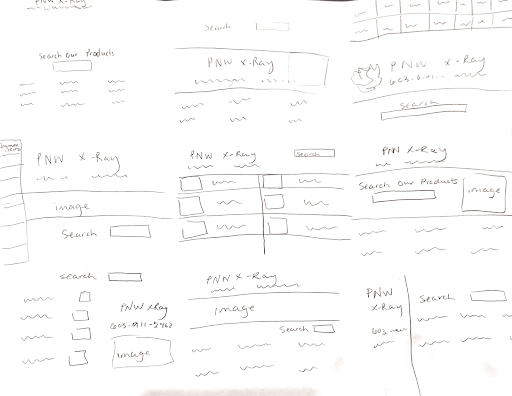 PNW X-Ray
Search Our Products
Search
PNW X-Ray
PNW X-Ray
Search
PNW X-Ray
image
Search
PNW X-Ray
Search
PNW X-Ray
Search Our Products
image
Search
PNW XRay
image
PNW X-Ray
image
Search
PNW
X-Ray
Search